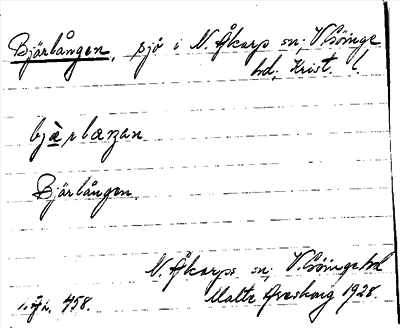 Bjärlången, sjö i N. Åkarps sn; V. Göinge
hd; Krist. l.
bjärlaŋan
Bjärlången.
N. Åkarps sn; V. Göinge hd
Malte Areskoug 1928.
458.